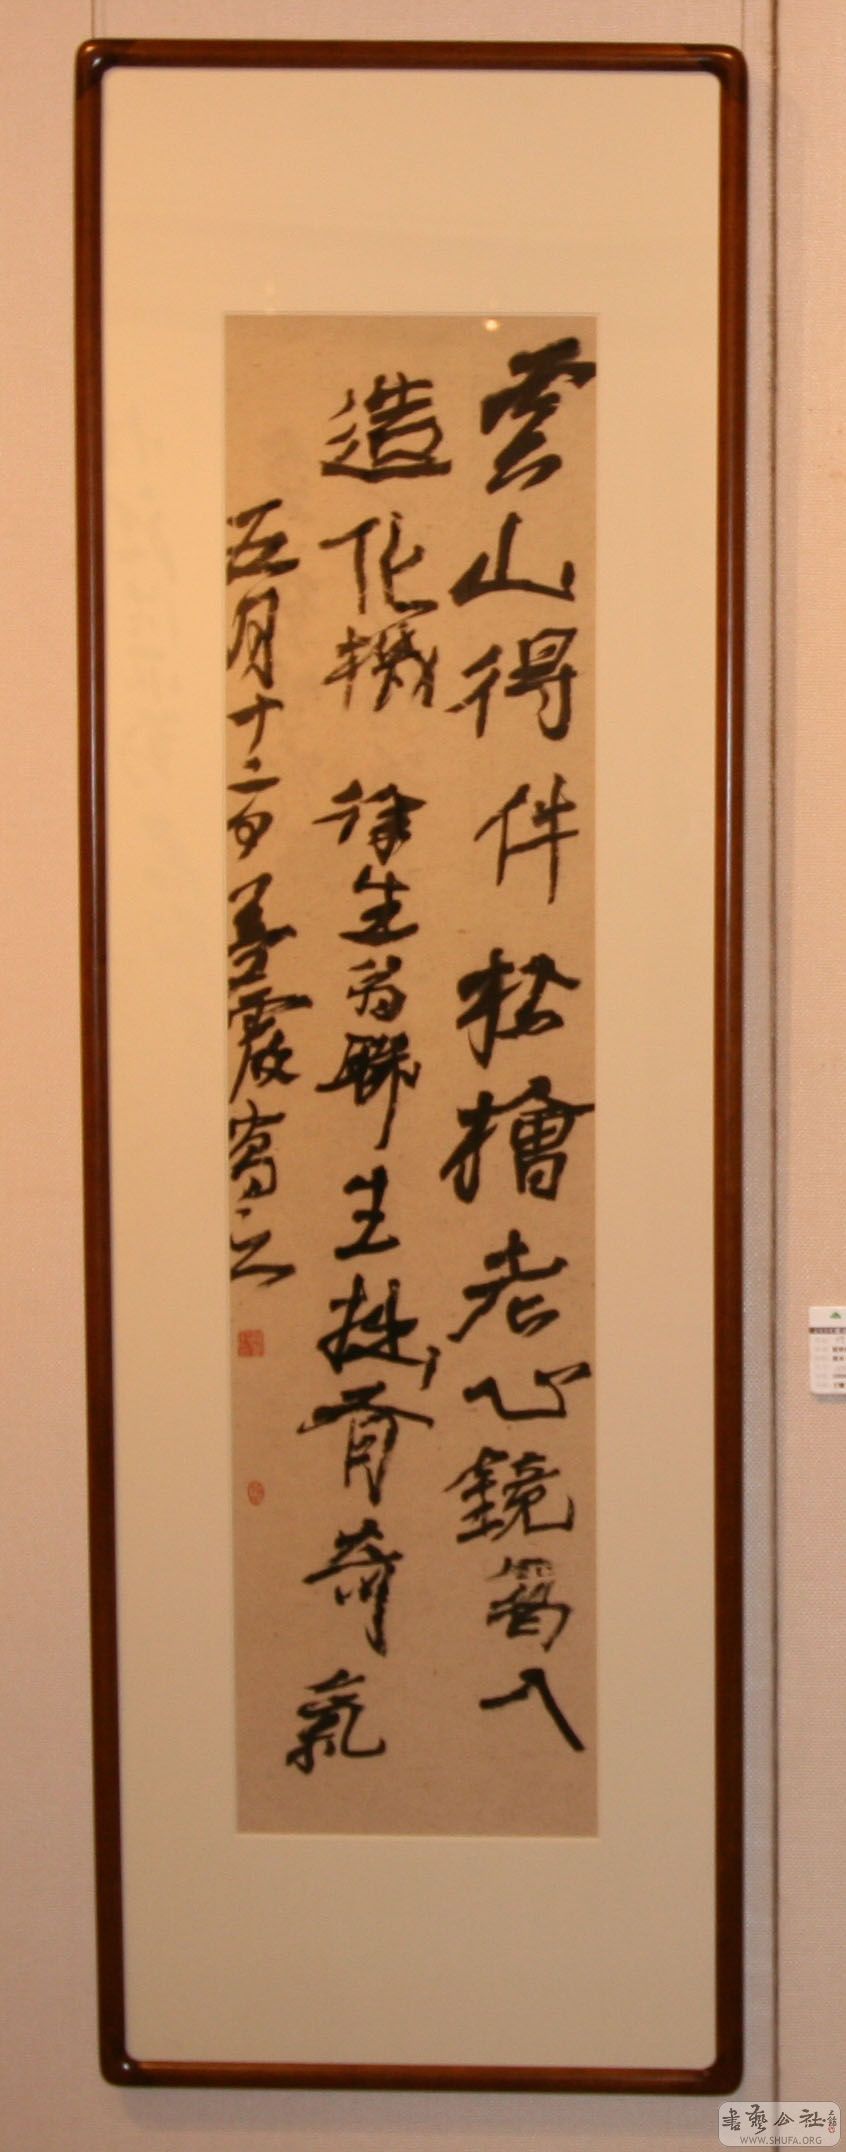 雲山得件松檜老心鏡寫入
造化機 徐生翁聯 生拙有奇氣
五月十二日 善震寫之
書藝公社
WWW.SHUFA.ORG